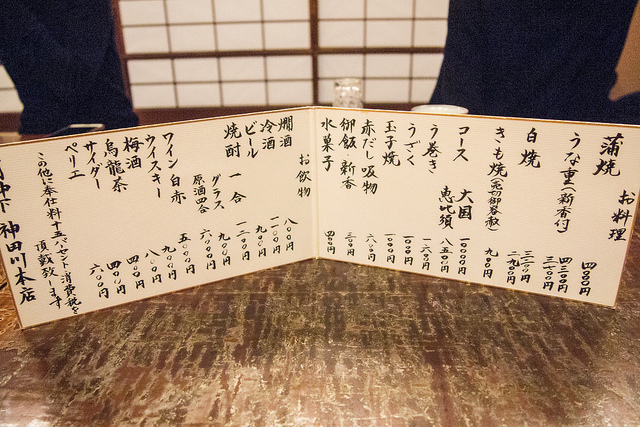 お料理
蒲焼 四〇〇〇円
うな重(新香付) 四三〇〇円
白焼
きも焼(売切御容赦) 九〇〇円
コース 大国 一〇〇〇〇円
恵比須
う巻き 一六〇〇円
うざく 一〇〇〇円
玉子焼 一〇〇〇円
赤だし 吸物 六〇〇円
御飯 新香 三〇〇円
水菓子 四〇〇円
お飲物
燗酒 八〇〇円
冷酒
ビール 九〇〇円
焼酎 一合 一二〇〇円
グラス
原酒四合
ワイン 白 赤
ウイスキー 九〇〇円
梅酒 八〇〇円
烏龍茶 四〇〇円
サイダー 四〇〇円
ペリエ 六〇〇円
この他に奉仕料十五パーセント消費税を
頂戴致します
神田川本店